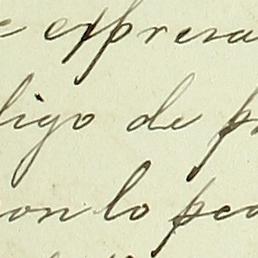 e expresa
ligo de p
con lo pe